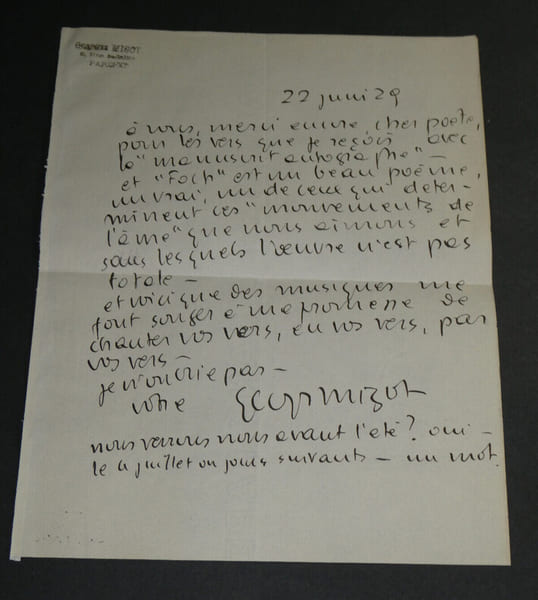 Georges MIGOT
PARIS
22 juin 29
à vous, merci encore, cher poète,
pour les vers que je reçois avec
le "manuscrit autographe" —
et "Foch" est un beau poème,
un vrai, un de ceux qui déter-
minent ces "mouvements de
l'âme" que nous aimons et
sans lesquels l'œuvre n'est pas
totale —
et voici que des musiques me
font songer à ma promesse de
chanter vos vers, en vos vers, par
vos vers —
je n'oublie pas —
votre Georges Migot
nous verrons nous avant l'été? oui —
le 4 juillet ou jours suivants — un mot.